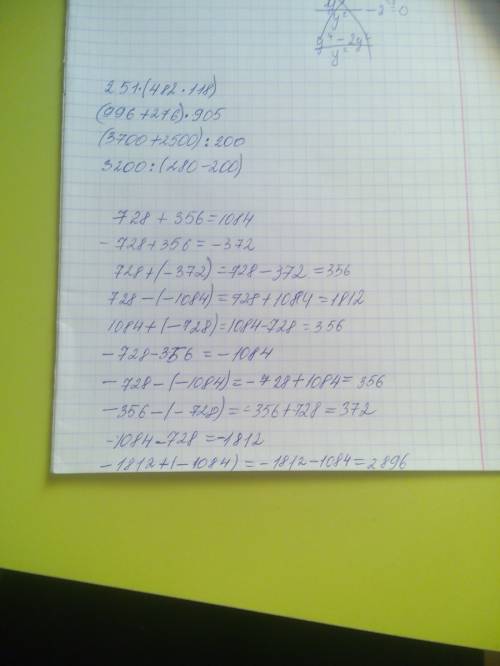 y² - 2 = 0
y⁴ - 2y²
y²
251·(482·118)
(996+276)·905
(3700+2500):200
3200:(280-200)
728 + 356 = 1084
- 728 + 356 = -372
728+(-372) = 728 - 372 = 356
728 - (-1084) = 728 + 1084 = 1812
1084 + (-728) = 1084 - 728 = 356
- 728 - 356 = - 1084
- 728 - (-1084) = - 728 + 1084 = 356
- 356 - (- 728) = - 356 + 728 = 372
- 1084 - 728 = -1812
- 1812 + (- 1084) = - 1812 - 1084 = 2896